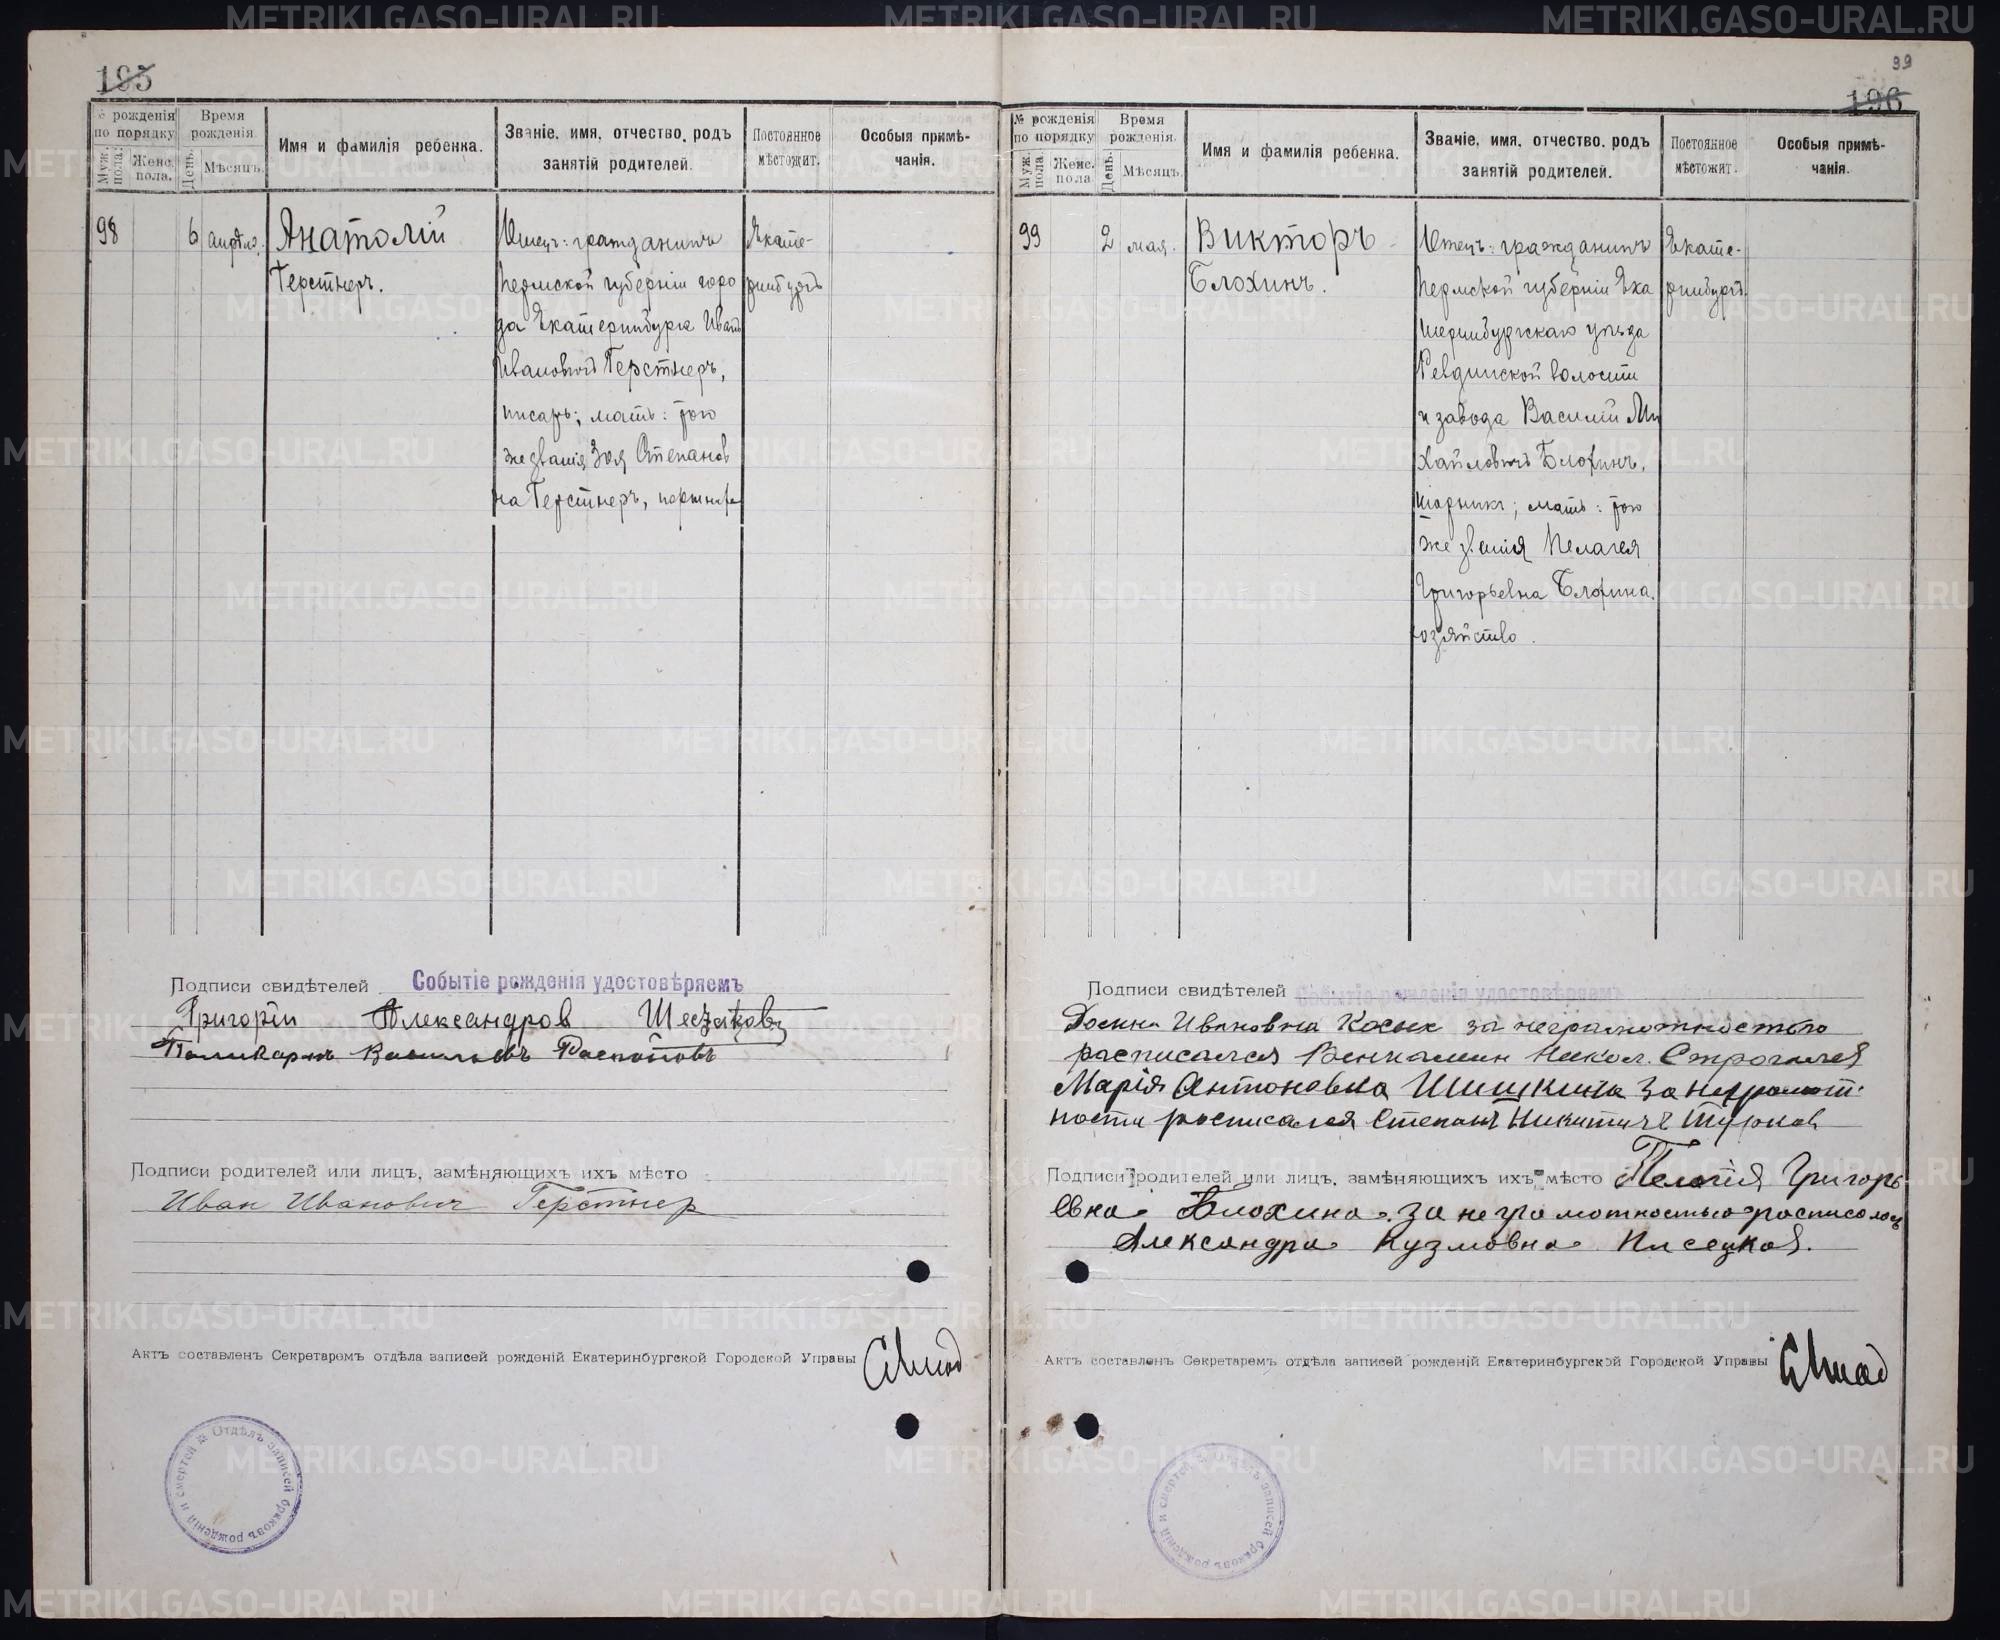 195
№ рожденія по порядку
Муж. пола.
Женс. пола.
Время рожденія.
День.
Мѣсяцъ.
Имя и фамилія ребенка.
Званіе, имя, отчество, родъ занятій родителей.
Постоянное мѣстожит.
Особыя примѣ-
чанія.
98
6
апрѣля.
Анатолій
Герстнеръ.
Отецъ: гражданинъ
Пермской губерніи горо
да Екатеринбурга Иванъ
Ивановичъ Герстнеръ,
писарь; мать: того
же званія Зоя Степанов
на Герстнеръ, портниха
Екате-
ринбургъ
Подписи свидѣтелей Событіе рожденія удостовѣряемъ
Григорій Александров
Поликарпъ Васильевъ
Подписи родителей или лицъ, замѣняющихъ ихъ мѣсто
Иван Иванович Герстнер
Актъ составленъ Секретаремъ отдѣла записей рожденій Екатеринбургской Городской Управы
Отдѣлъ записей браковъ рожденій и смертей
99
196
№ рожденія по порядку
Муж. пола.
Женс. пола
Время рожденія.
День.
Мѣсяцъ.
Имя и фамилія ребенка.
Званіе, имя, отчество, родъ занятій родителей.
Постоянное мѣстожит.
Особыя примѣ-
чанія.
99
2
мая.
Викторъ
Блохинъ.
Отецъ: гражданинъ
Пермской губерніи Ека
теринбургскаго уѣзда
Ревдинской волости
и завода Василій Ми
хайловичъ Блохинъ,
; мать: того
же званія Пелагея
Григорьевна Блохина,
хозяйство.
Екате-
ринбургъ.
Подписи свидѣтелей Событіе рожденія удостовѣряемъ
Ивановна за неграмотностью
расписался Никол.
Марія Антоновна Шишкина за неграмот-
ности росписался Степанъ Никитичъ
Подписи родителей или лицъ, замѣняющихъ ихъ мѣсто Пелагія Григорь
евна Блохина за неграмотностью росписалась
Александра Кузмовна Писецкая.
Актъ составленъ Секретаремъ отдѣла записей рожденій Екатеринбургской Городской Управы
Отдѣлъ записей браковъ рожденій и смертей
METRIKI.GASO-URAL.RU